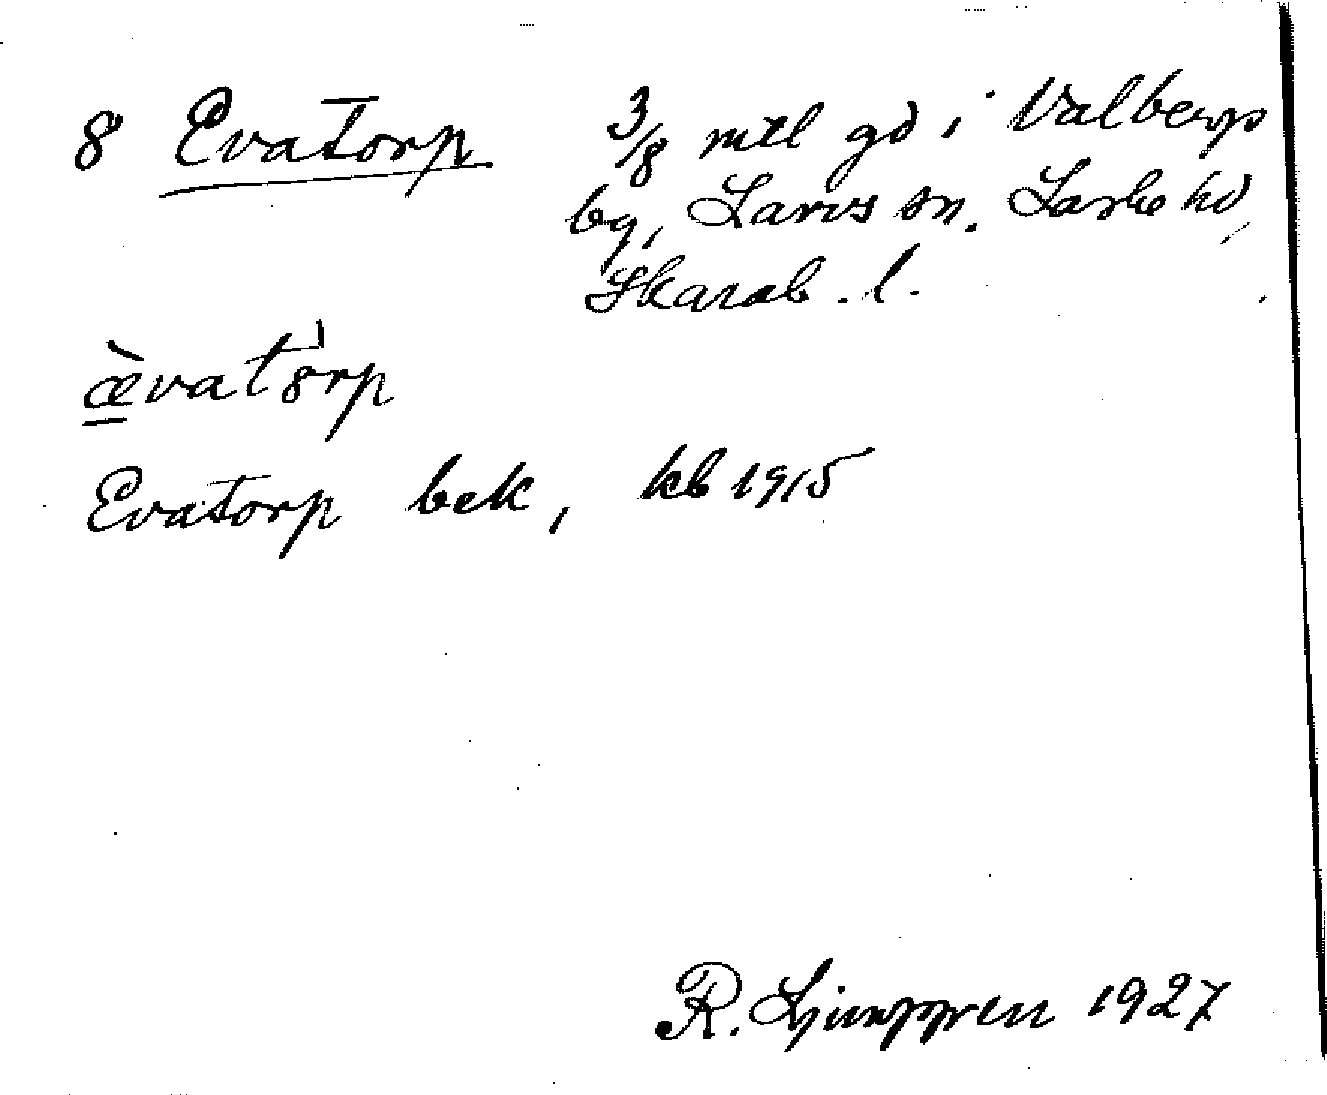 8 Evatorp 3/8 mtl gd i Valbergs
by, Larvs sn. Laske hd,
Skarab. l.
æ̀vatòrp
Evatorp bek, kb 1915
R. Ljunggren 1927